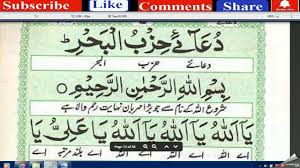 Subscribe Like Comments Share
دُعَائے حِزْبُ الْبَحْرِ
دعائے حزب البحر
بِسْمِ اللّٰهِ الرَّحْمٰنِ الرَّحِيْمِ
شروع اللہ کے نام سے جو بڑا مہربان نہایت رحم والا ہے
يَا اَللّٰهُ يَا اَللّٰهُ يَا اَللّٰهُ يَا عَلِيُّ يَا
Page 12 of 55
اے اللہ اے اللہ اے اللہ اے بلند مرتبہ اے